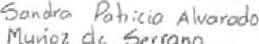 Sandra Patricia Alvarado
Muñoz de Serrano